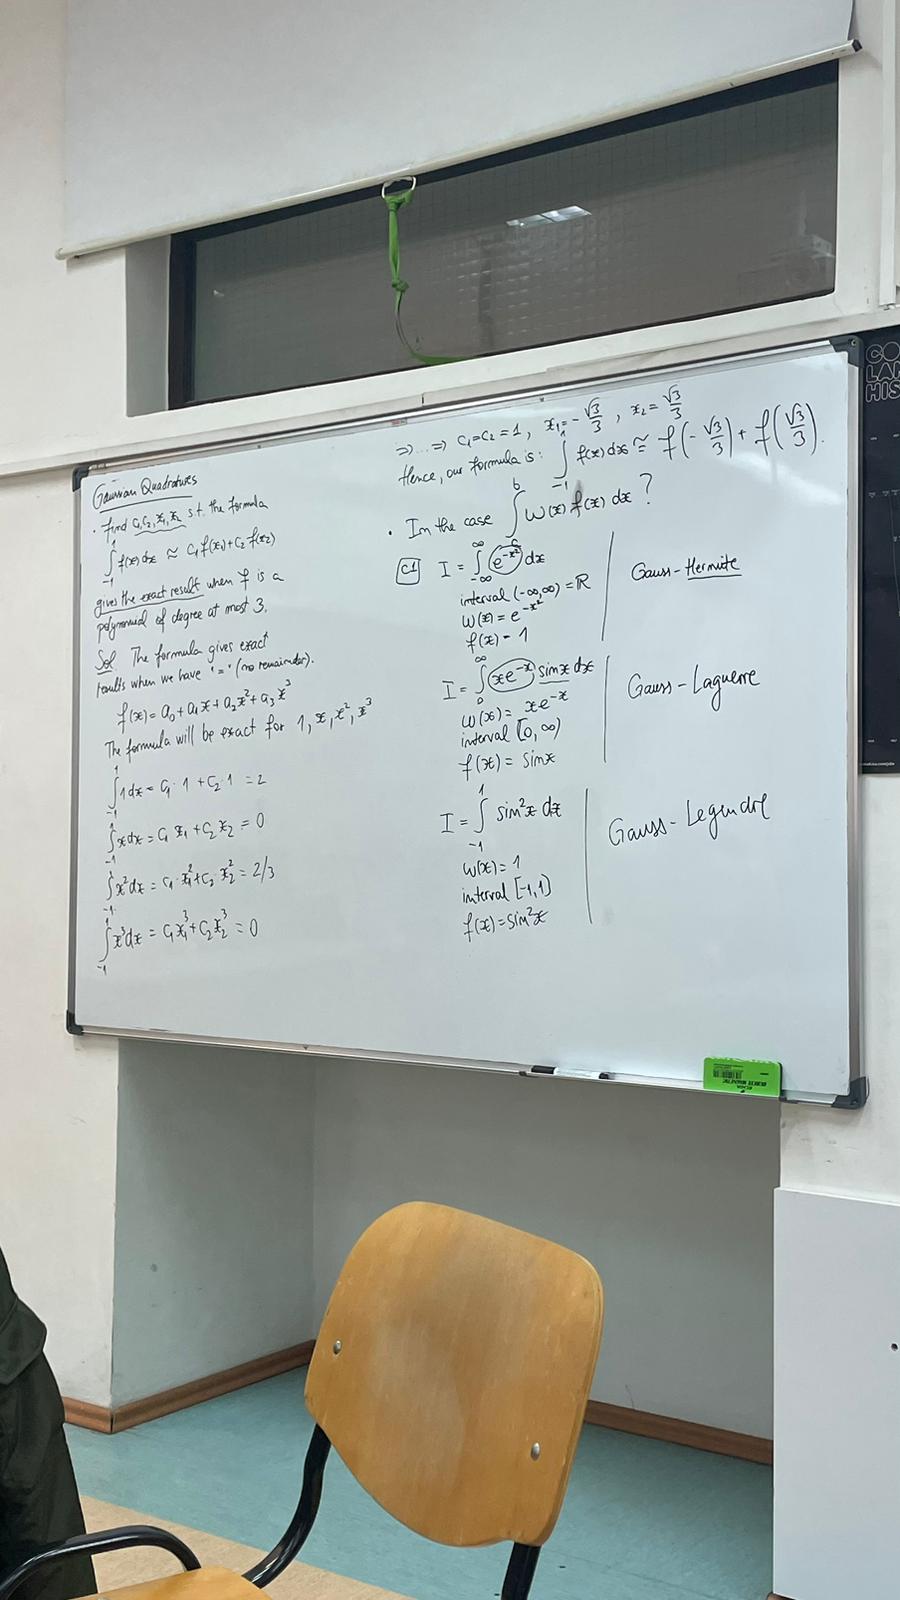 Gaussian Quadratures
• Find c₁, c₂, x₁, x₂ s.t. the formula
∫₋₁¹ f(x) dx ≈ c₁ f(x₁) + c₂ f(x₂)
gives the exact result when f is a
polynomial of degree at most 3.
Sol The formula gives exact
results when we have "=" (no remainder).
f(x) = a₀ + a₁x + a₂x² + a₃x³
The formula will be exact for 1, x, x², x³
∫₋₁¹ 1 dx = c₁·1 + c₂·1 = 2
∫₋₁¹ x dx = c₁ x₁ + c₂ x₂ = 0
∫₋₁¹ x² dx = c₁·x₁² + c₂·x₂² = 2/3
∫₋₁¹ x³ dx = c₁x₁³ + c₂x₂³ = 0
⇒ ... ⇒ c₁ = c₂ = 1, x₁ = -√3/3, x₂ = √3/3
Hence, our formula is: ∫₋₁¹ f(x) dx ≅ f(-√3/3) + f(√3/3).
• In the case ∫ₐᵇ w(x) f(x) dx ?
C1 I = ∫₋∞^∞ e^(-x²) dx
interval (-∞, ∞) = ℝ
w(x) = e^(-x²)
f(x) = 1
Gauss-Hermite
I = ∫₀^∞ xe^(-x) sinx dx
w(x) = xe^(-x)
interval [0, ∞)
f(x) = sinx
Gauss-Laguerre
I = ∫₋₁¹ sin²x dx
w(x) = 1
interval [-1, 1]
f(x) = sin²x
Gauss-Legendre
CO
LAN
HIS